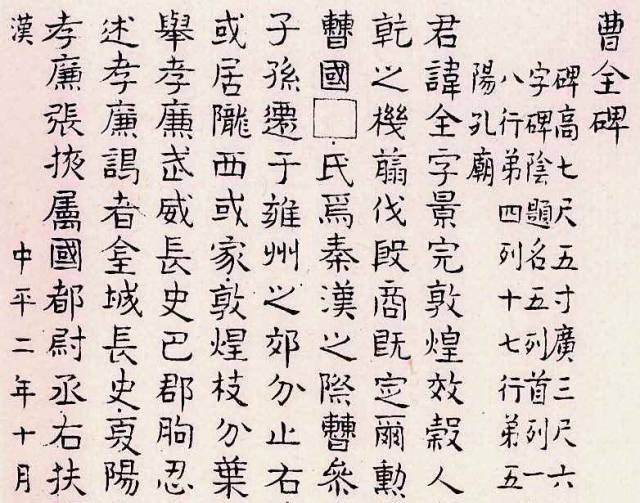 曹全碑
碑高七尺五寸廣三尺六
字碑陰題名五列首列一
八行第四列十七行第五
陽孔廟
君諱全字景完敦煌效穀人
乾之機翦伐殷商旣定爾勳
曹國□氏焉秦漢之際曹參
子孫遷于雍州之郊分止右
或居隴西或家敦煌枝分葉
舉孝廉武威長史巴郡朐忍
述孝廉謁者金城長史夏陽
孝廉張掖屬國都尉丞右扶
漢 中平二年十月